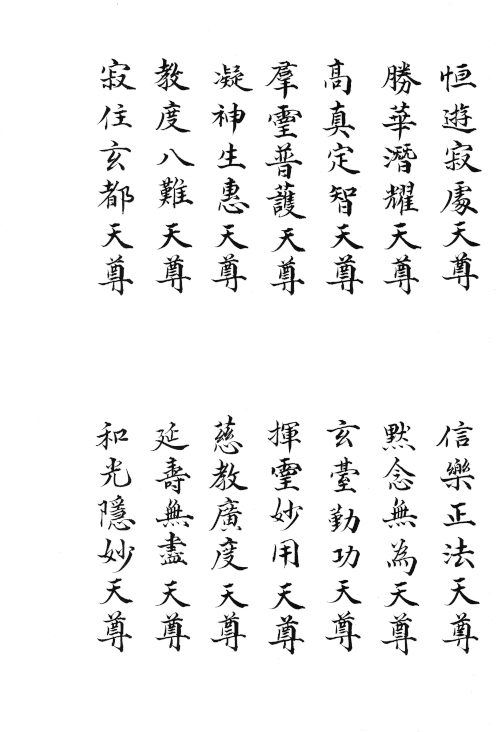 恒遊寂處天尊
勝華潛耀天尊
高真定智天尊
羣霊普護天尊
凝神生惠天尊
教度八難天尊
寂住玄都天尊
信樂正法天尊
默念無為天尊
玄臺勤功天尊
揮霊妙用天尊
慈教廣度天尊
延壽無盡天尊
和光隱妙天尊